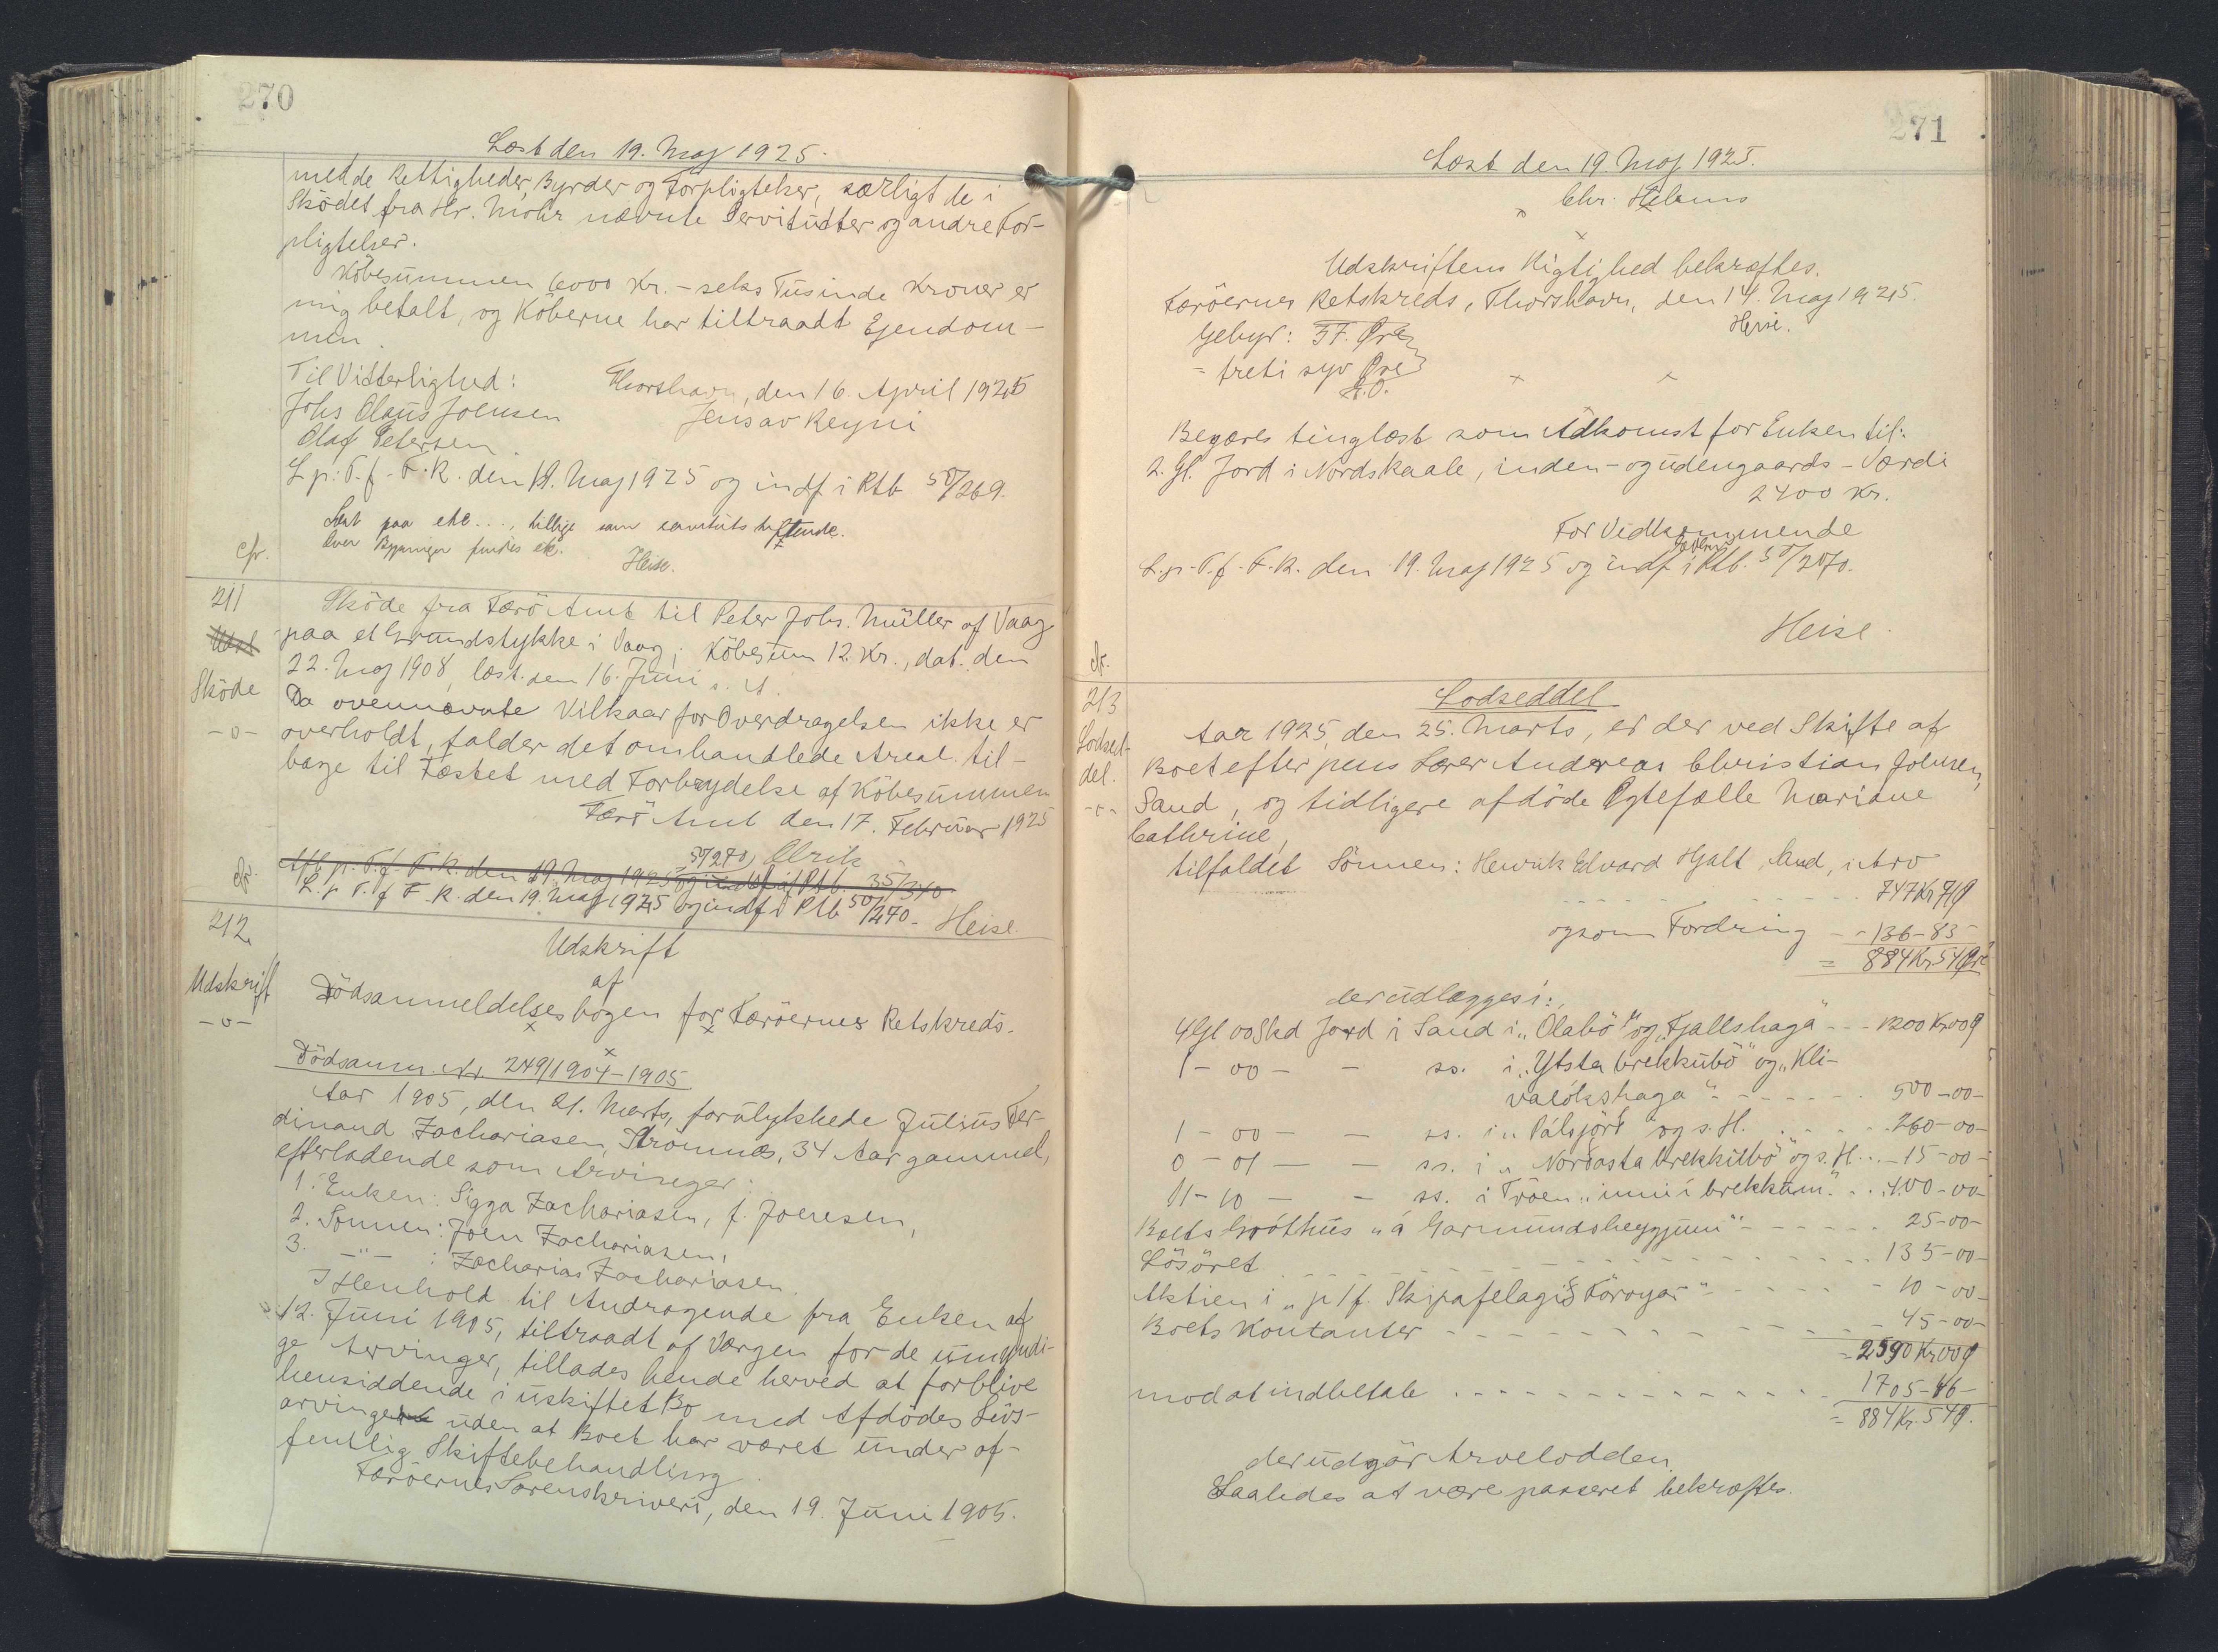 270
Læst den 19. Maj 1925.
med de Rettigheder, Byrder og Forpligtelser, særligt de i
Skødet fra Hr. Mohr nævnte Servitutter og andre For-
pligtelser.
Købesummen 6000 Kr. - seks Tusinde Kroner er
mig betalt, og Køberne har tiltraadt Ejendom-
men.
Til Vitterlighed: Thorshavn, den 16. April 1925
Johs Olaus Joensen Jens av Reyni
Olaf Petersen
L.p.T.f.F.R. den 19. Maj 1925 og indf. i Rtb 50/269.
Læst paa etc..., tillige som servitutstiftende.
Over Bygninger findes etc.
cfr. Heise.
211 Skøde fra Færø Amt til Peter Johs. Müller af Vaag
paa et Grundstykke i Vaag; Købesum 12 Kr., dat. den
22. Maj 1908, læst den 16. Juni s. A.
Skøde Da ovennævnte Vilkaar for Overdragelsen ikke er
-o- overholdt, falder det omhandlede Areal til-
bage til Fæstet med Forbrydelse af Købesummen
Færø Amt den 17. Februar 1925
50/270 Ulrik
Afl. p. T. f. F. R. den 19. Maj 1925 og indf. i Rtb. 35/340
cfr. L. p T. f F. R. den 19. Maj 1925 og indf i Rtb 50/270. Heise.
212 Udskrift
af
Udskrift Dødsanmeldelsesbogen for Færøernes Retskreds.
-o-
Dødsanm. Nr. 249/1904-1905
Aar 1905, den 21. Marts, forulykkede Julius Fer-
dinand Zachariasen, Strømnæs, 34 Aar gammel,
efterladende som Arvinger:
1. Enken: Sigga Zachariasen, f. Joensen,
2. Sønnen: Joen Zachariasen,
3. -"- : Zacharias Zachariasen.
I Henhold til Andragende fra Enken af
12. Juni 1905, tiltraadt af Værgen for de umyndi-
ge Arvinger, tillades hende herved at forblive
hensiddende i uskiftet Bo med Afdødes Livs-
arvinger uden at Boet har været under of-
fentlig Skiftebehandling.
Færøernes Sorenskriveri, den 19. Juni 1905.
271
Læst den 19. Maj 1925.
Chr. Helms
Udskriftens Rigtighed bekræftes.
Færøernes Retskreds, Thorshavn, den 14. Maj 1925.
Heise.
Gebyr: 37. Øre
= treti syv Øre
H.O.
Begæres tinglæst som Adkomst for Enken til:
2. Gl. Jord i Nordskaale, inden- og udengaards - Værdi
2400 Kr.
For Vedkommende
L.p.T.f.F.R. den 19. Maj 1925 og indf. i Rtb. 50/270.
Heise.
cfr.
213 Lodseddel
Lodsed-
del.
Aar 1925, den 25. Marts, er der ved Skifte af
Boet efter pens Lærer Andreas Christian Joensen,
Sand, og tidligere afdøde Ægtefælle Mariane
Cathrine,
tilfaldet Sønnen: Henrik Edvard Hjalt Sand, i Arv
747 Kr 71 Ø
og som Fordring - - 136-83
= 884 Kr. 54 Øre
der udlægges i:
4 Gl 00 Skd Jord i Sand i „Ølabø" og „Fjallshaga" - - - 1200 Kr 00 Ø
1 - 00 - - ss. i „Ytsta brekkubø" og „Kli-
valókshaga" - - - - - - 500-00-
1 - 00 - - ss. i „Pálsjørð" og s. H. . . . . . 260-00-
0 - 01 - - ss. i „Norðasta brekkubø" og s. H. . . - 15-00-
11 - 10 - - ss. i Trøen „inni í brekkum" . . . 400-00-
Boets Gróthús „á Garmundsheyggjum" - - - - - - 25-00-
Løsøret - - - - - - - - - - 135-00-
Aktien i „p/f. Skipafelagið Føroyar" - - - - - - 10-00-
Boets Kontanter - - - - - - - - - 45-00-
= 2590 Kr 00 Ø
mod at indbetale - - - - - - - - - 1705-46-
= 884 Kr. 54 Ø.
der udgør Arvelodden.
Saaledes at være passeret bekræftes.